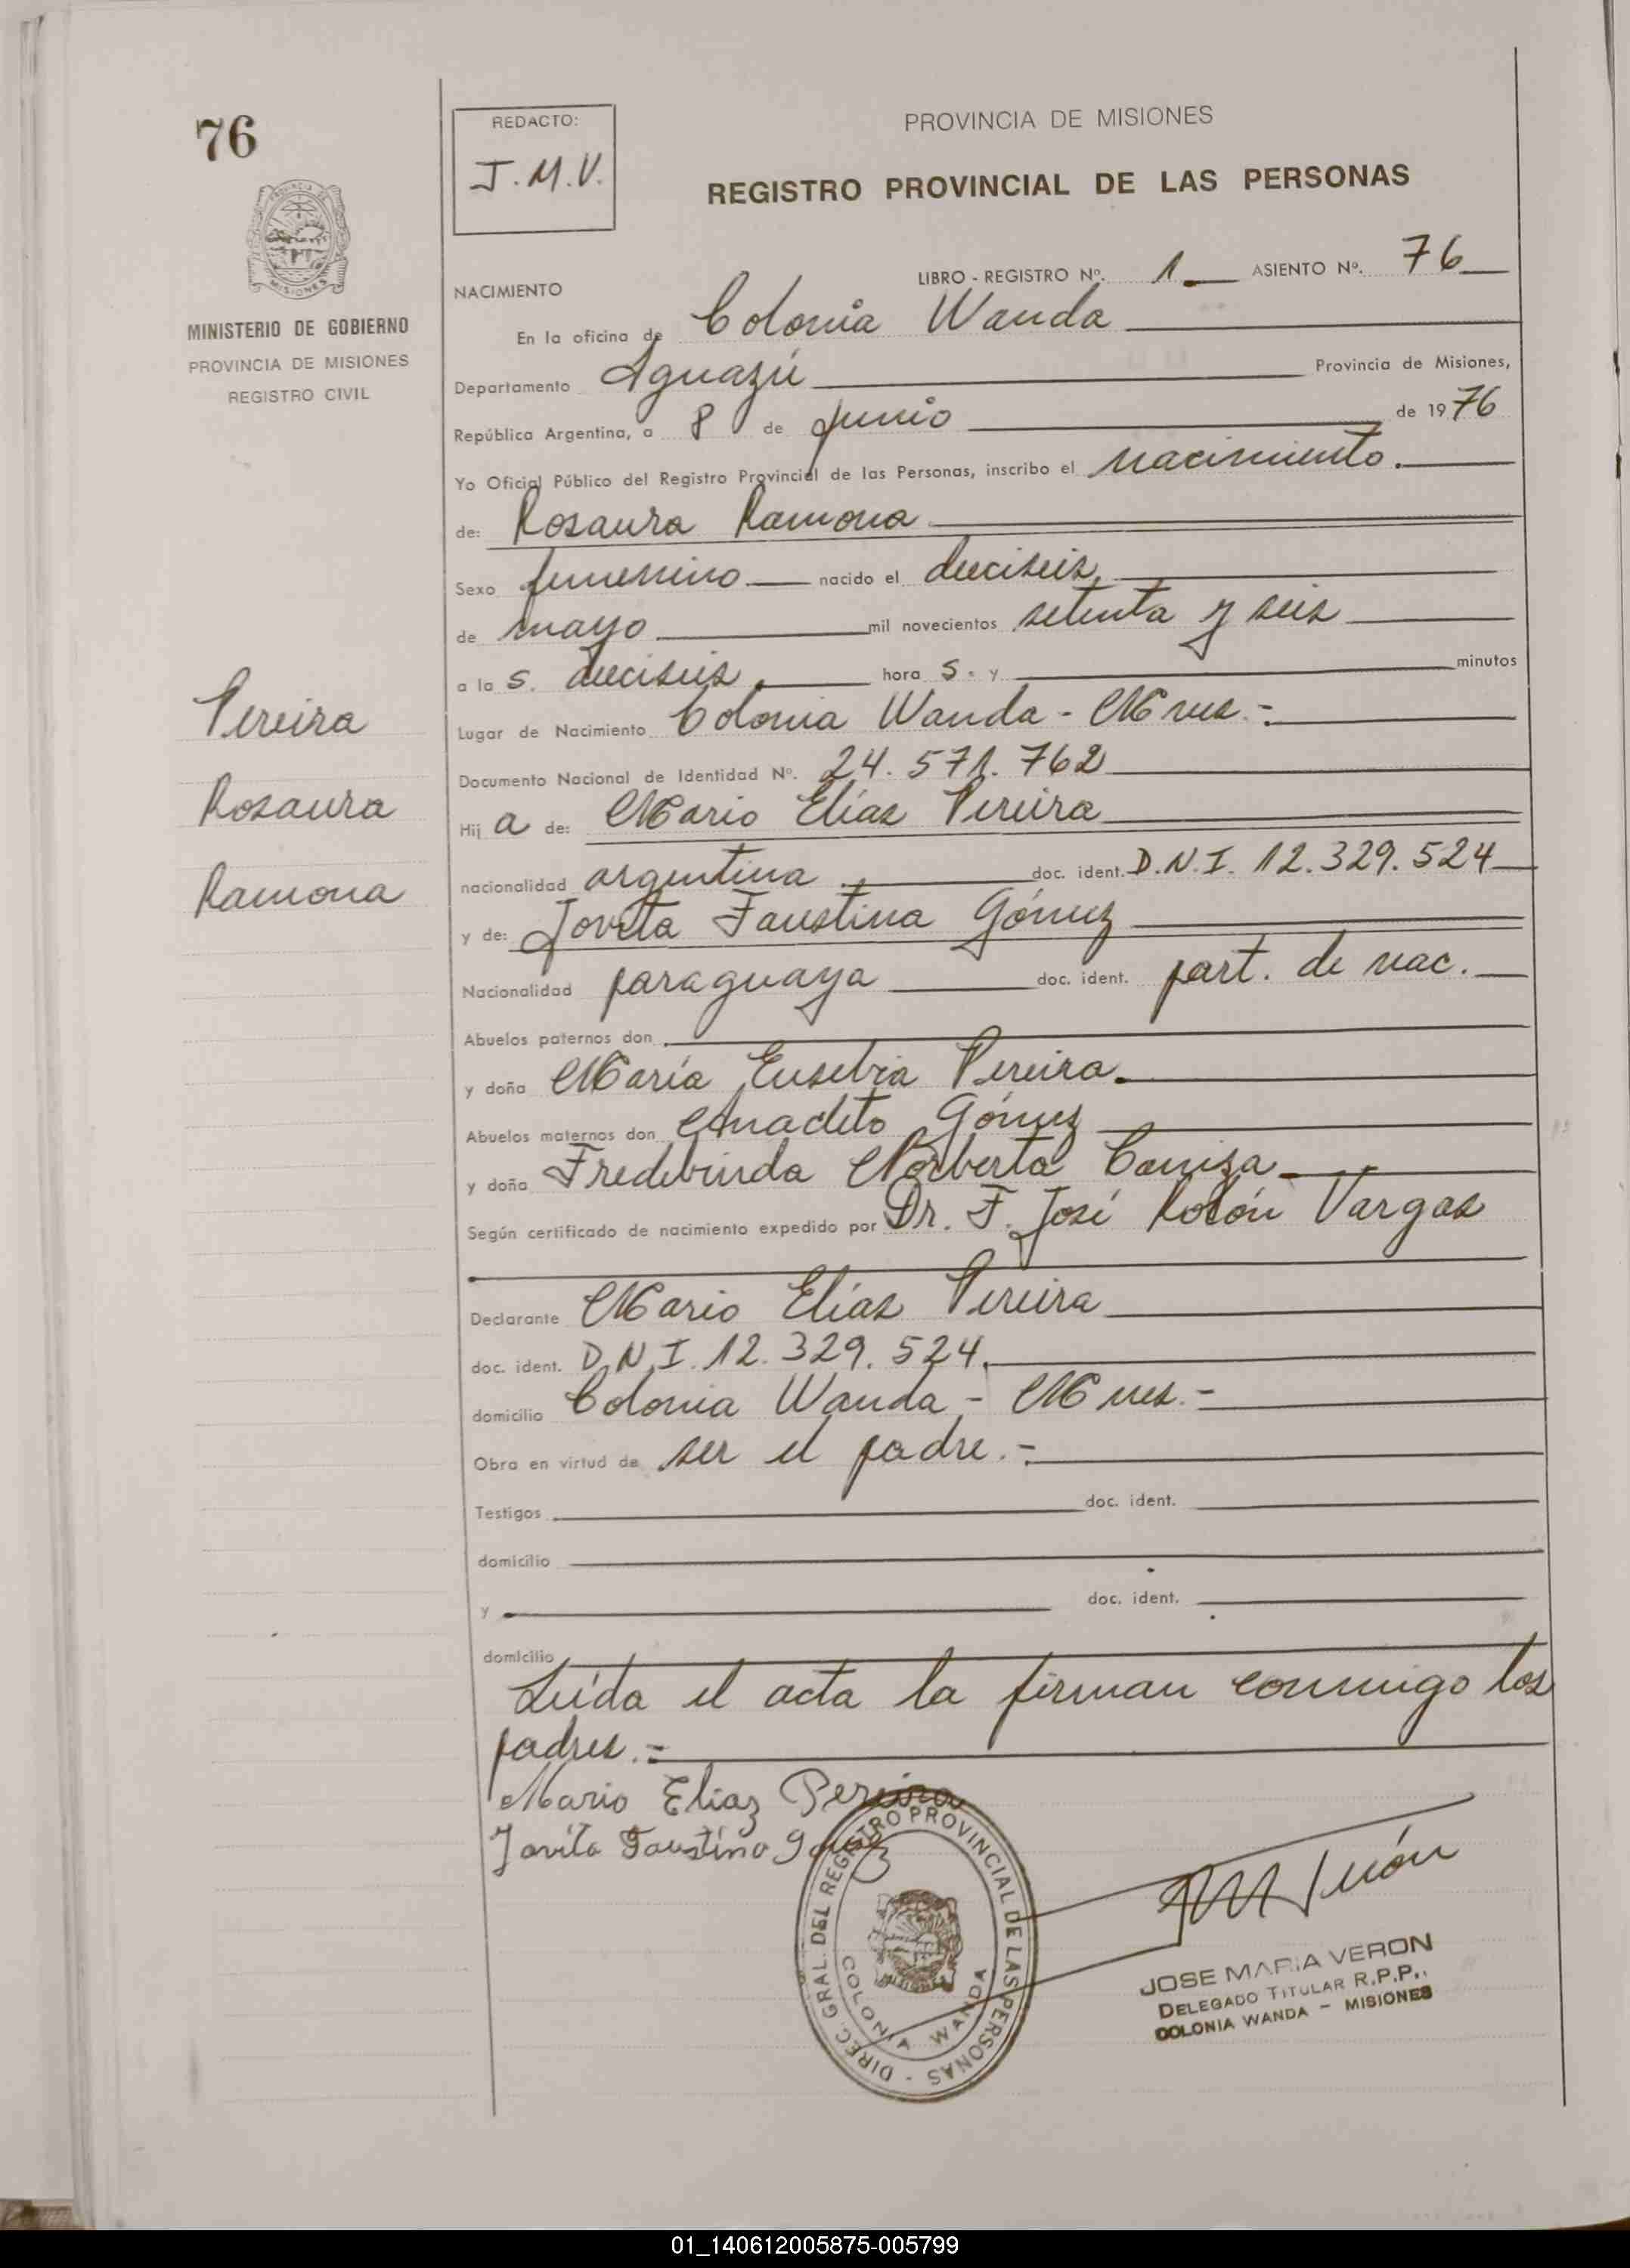 76
REDACTO:
J.M.V.
PROVINCIA DE MISIONES
REGISTRO PROVINCIAL DE LAS PERSONAS
PROVINCIA DE
MISIONES
MINISTERIO DE GOBIERNO
PROVINCIA DE MISIONES
REGISTRO CIVIL
LIBRO - REGISTRO Nº. 1 ASIENTO Nº. 76
NACIMIENTO
En la oficina de Colonia Wanda
Departamento Iguazú Provincia de Misiones,
República Argentina, a 8 de junio de 1976
Yo Oficial Público del Registro Provincial de las Personas, inscribo el nacimiento.
de: Rosaura Ramona
Sexo femenino nacido el dieciseis,
de mayo mil novecientos setenta y seis
a la s. dieciseis hora s. y minutos
Lugar de Nacimiento Colonia Wanda - Mnes.-
Documento Nacional de Identidad Nº. 24.571.762
Hij a de: Mario Elías Pereira
nacionalidad argentina doc. ident. D.N.I. 12.329.524
y de: Jovita Faustina Gómez
Nacionalidad paraguaya doc. ident. part. de nac.
Abuelos paternos don
y doña María Eusebia Pereira.
Abuelos maternos don Anacleto Gómez
y doña Fredebinda Norberta Caniza
Según certificado de nacimiento expedido por Dr. F. José Rolón Vargas
Declarante Mario Elías Pereira
doc. ident. D.N.I. 12.329.524.
domicilio Colonia Wanda - Mnes.-
Obra en virtud de ser el padre.-
Testigos doc. ident.
domicilio
y doc. ident.
domicilio
Leída el acta la firman conmigo los
padres.-
Pereira
Rosaura
Ramona
Mario Eliaz Pereira
Jovita Faustina Gomez
DIREC. GRAL. DEL REGISTRO PROVINCIAL DE LAS PERSONAS -
COLONIA WANDA
JOSE MARIA VERON
DELEGADO TITULAR R.P.P.
COLONIA WANDA - MISIONES
01_140612005875-005799